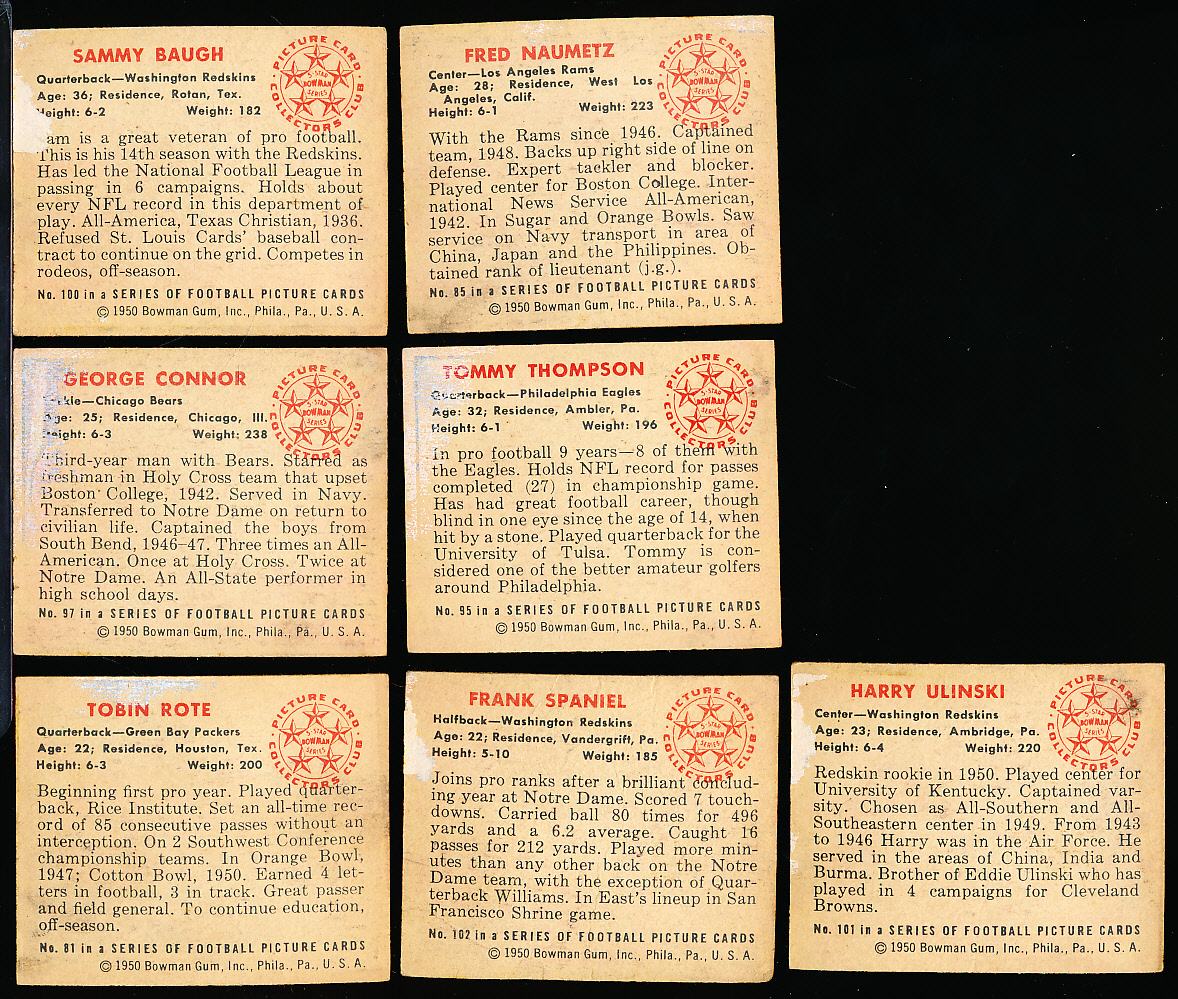 SAMMY BAUGH
Quarterback—Washington Redskins
Age: 36; Residence, Rotan, Tex.
Height: 6-2 Weight: 182
PICTURE CARD COLLECTORS CLUB
5-STAR
BOWMAN
SERIES
am is a great veteran of pro football.
This is his 14th season with the Redskins.
Has led the National Football League in
passing in 6 campaigns. Holds about
every NFL record in this department of
play. All-America, Texas Christian, 1936.
Refused St. Louis Cards' baseball con-
tract to continue on the grid. Competes in
rodeos, off-season.
No. 100 in a SERIES OF FOOTBALL PICTURE CARDS
© 1950 Bowman Gum, Inc., Phila., Pa., U. S. A.
FRED NAUMETZ
Center—Los Angeles Rams
Age: 28; Residence, West Los
Angeles, Calif.
Height: 6-1 Weight: 223
PICTURE CARD COLLECTORS CLUB
5-STAR
BOWMAN
SERIES
With the Rams since 1946. Captained
team, 1948. Backs up right side of line on
defense. Expert tackler and blocker.
Played center for Boston College. Inter-
national News Service All-American,
1942. In Sugar and Orange Bowls. Saw
service on Navy transport in area of
China, Japan and the Philippines. Ob-
tained rank of lieutenant (j.g.).
No. 85 in a SERIES OF FOOTBALL PICTURE CARDS
© 1950 Bowman Gum, Inc., Phila., Pa., U. S. A.
GEORGE CONNOR
Tackle—Chicago Bears
Age: 25; Residence, Chicago, Ill.
Height: 6-3 Weight: 238
PICTURE CARD COLLECTORS CLUB
5-STAR
BOWMAN
SERIES
Third-year man with Bears. Starred as
freshman in Holy Cross team that upset
Boston College, 1942. Served in Navy.
Transferred to Notre Dame on return to
civilian life. Captained the boys from
South Bend, 1946–47. Three times an All-
American. Once at Holy Cross. Twice at
Notre Dame. An All-State performer in
high school days.
No. 97 in a SERIES OF FOOTBALL PICTURE CARDS
© 1950 Bowman Gum, Inc., Phila., Pa., U. S. A.
TOMMY THOMPSON
Quarterback—Philadelphia Eagles
Age: 32; Residence, Ambler, Pa.
Height: 6-1 Weight: 196
PICTURE CARD COLLECTORS CLUB
5-STAR
BOWMAN
SERIES
In pro football 9 years—8 of them with
the Eagles. Holds NFL record for passes
completed (27) in championship game.
Has had great football career, though
blind in one eye since the age of 14, when
hit by a stone. Played quarterback for the
University of Tulsa. Tommy is con-
sidered one of the better amateur golfers
around Philadelphia.
No. 95 in a SERIES OF FOOTBALL PICTURE CARDS
© 1950 Bowman Gum, Inc., Phila., Pa., U. S. A.
TOBIN ROTE
Quarterback—Green Bay Packers
Age: 22; Residence, Houston, Tex.
Height: 6-3 Weight: 200
PICTURE CARD COLLECTORS CLUB
5-STAR
BOWMAN
SERIES
Beginning first pro year. Played quarter-
back, Rice Institute. Set an all-time rec-
ord of 85 consecutive passes without an
interception. On 2 Southwest Conference
championship teams. In Orange Bowl,
1947; Cotton Bowl, 1950. Earned 4 let-
ters in football, 3 in track. Great passer
and field general. To continue education,
off-season.
No. 81 in a SERIES OF FOOTBALL PICTURE CARDS
© 1950 Bowman Gum, Inc., Phila., Pa., U. S. A.
FRANK SPANIEL
Halfback—Washington Redskins
Age: 22; Residence, Vandergrift, Pa.
Height: 5-10 Weight: 185
PICTURE CARD COLLECTORS CLUB
5-STAR
BOWMAN
SERIES
Joins pro ranks after a brilliant conclud-
ing year at Notre Dame. Scored 7 touch-
downs. Carried ball 80 times for 496
yards and a 6.2 average. Caught 16
passes for 212 yards. Played more min-
utes than any other back on the Notre
Dame team, with the exception of Quar-
terback Williams. In East's lineup in San
Francisco Shrine game.
No. 102 in a SERIES OF FOOTBALL PICTURE CARDS
© 1950 Bowman Gum, Inc., Phila., Pa., U. S. A.
HARRY ULINSKI
Center—Washington Redskins
Age: 23; Residence, Ambridge, Pa.
Height: 6-4 Weight: 220
PICTURE CARD COLLECTORS CLUB
5-STAR
BOWMAN
SERIES
Redskin rookie in 1950. Played center for
University of Kentucky. Captained var-
sity. Chosen as All-Southern and All-
Southeastern center in 1949. From 1943
to 1946 Harry was in the Air Force. He
served in the areas of China, India and
Burma. Brother of Eddie Ulinski who has
played in 4 campaigns for Cleveland
Browns.
No. 101 in a SERIES OF FOOTBALL PICTURE CARDS
© 1950 Bowman Gum, Inc., Phila., Pa., U. S. A.